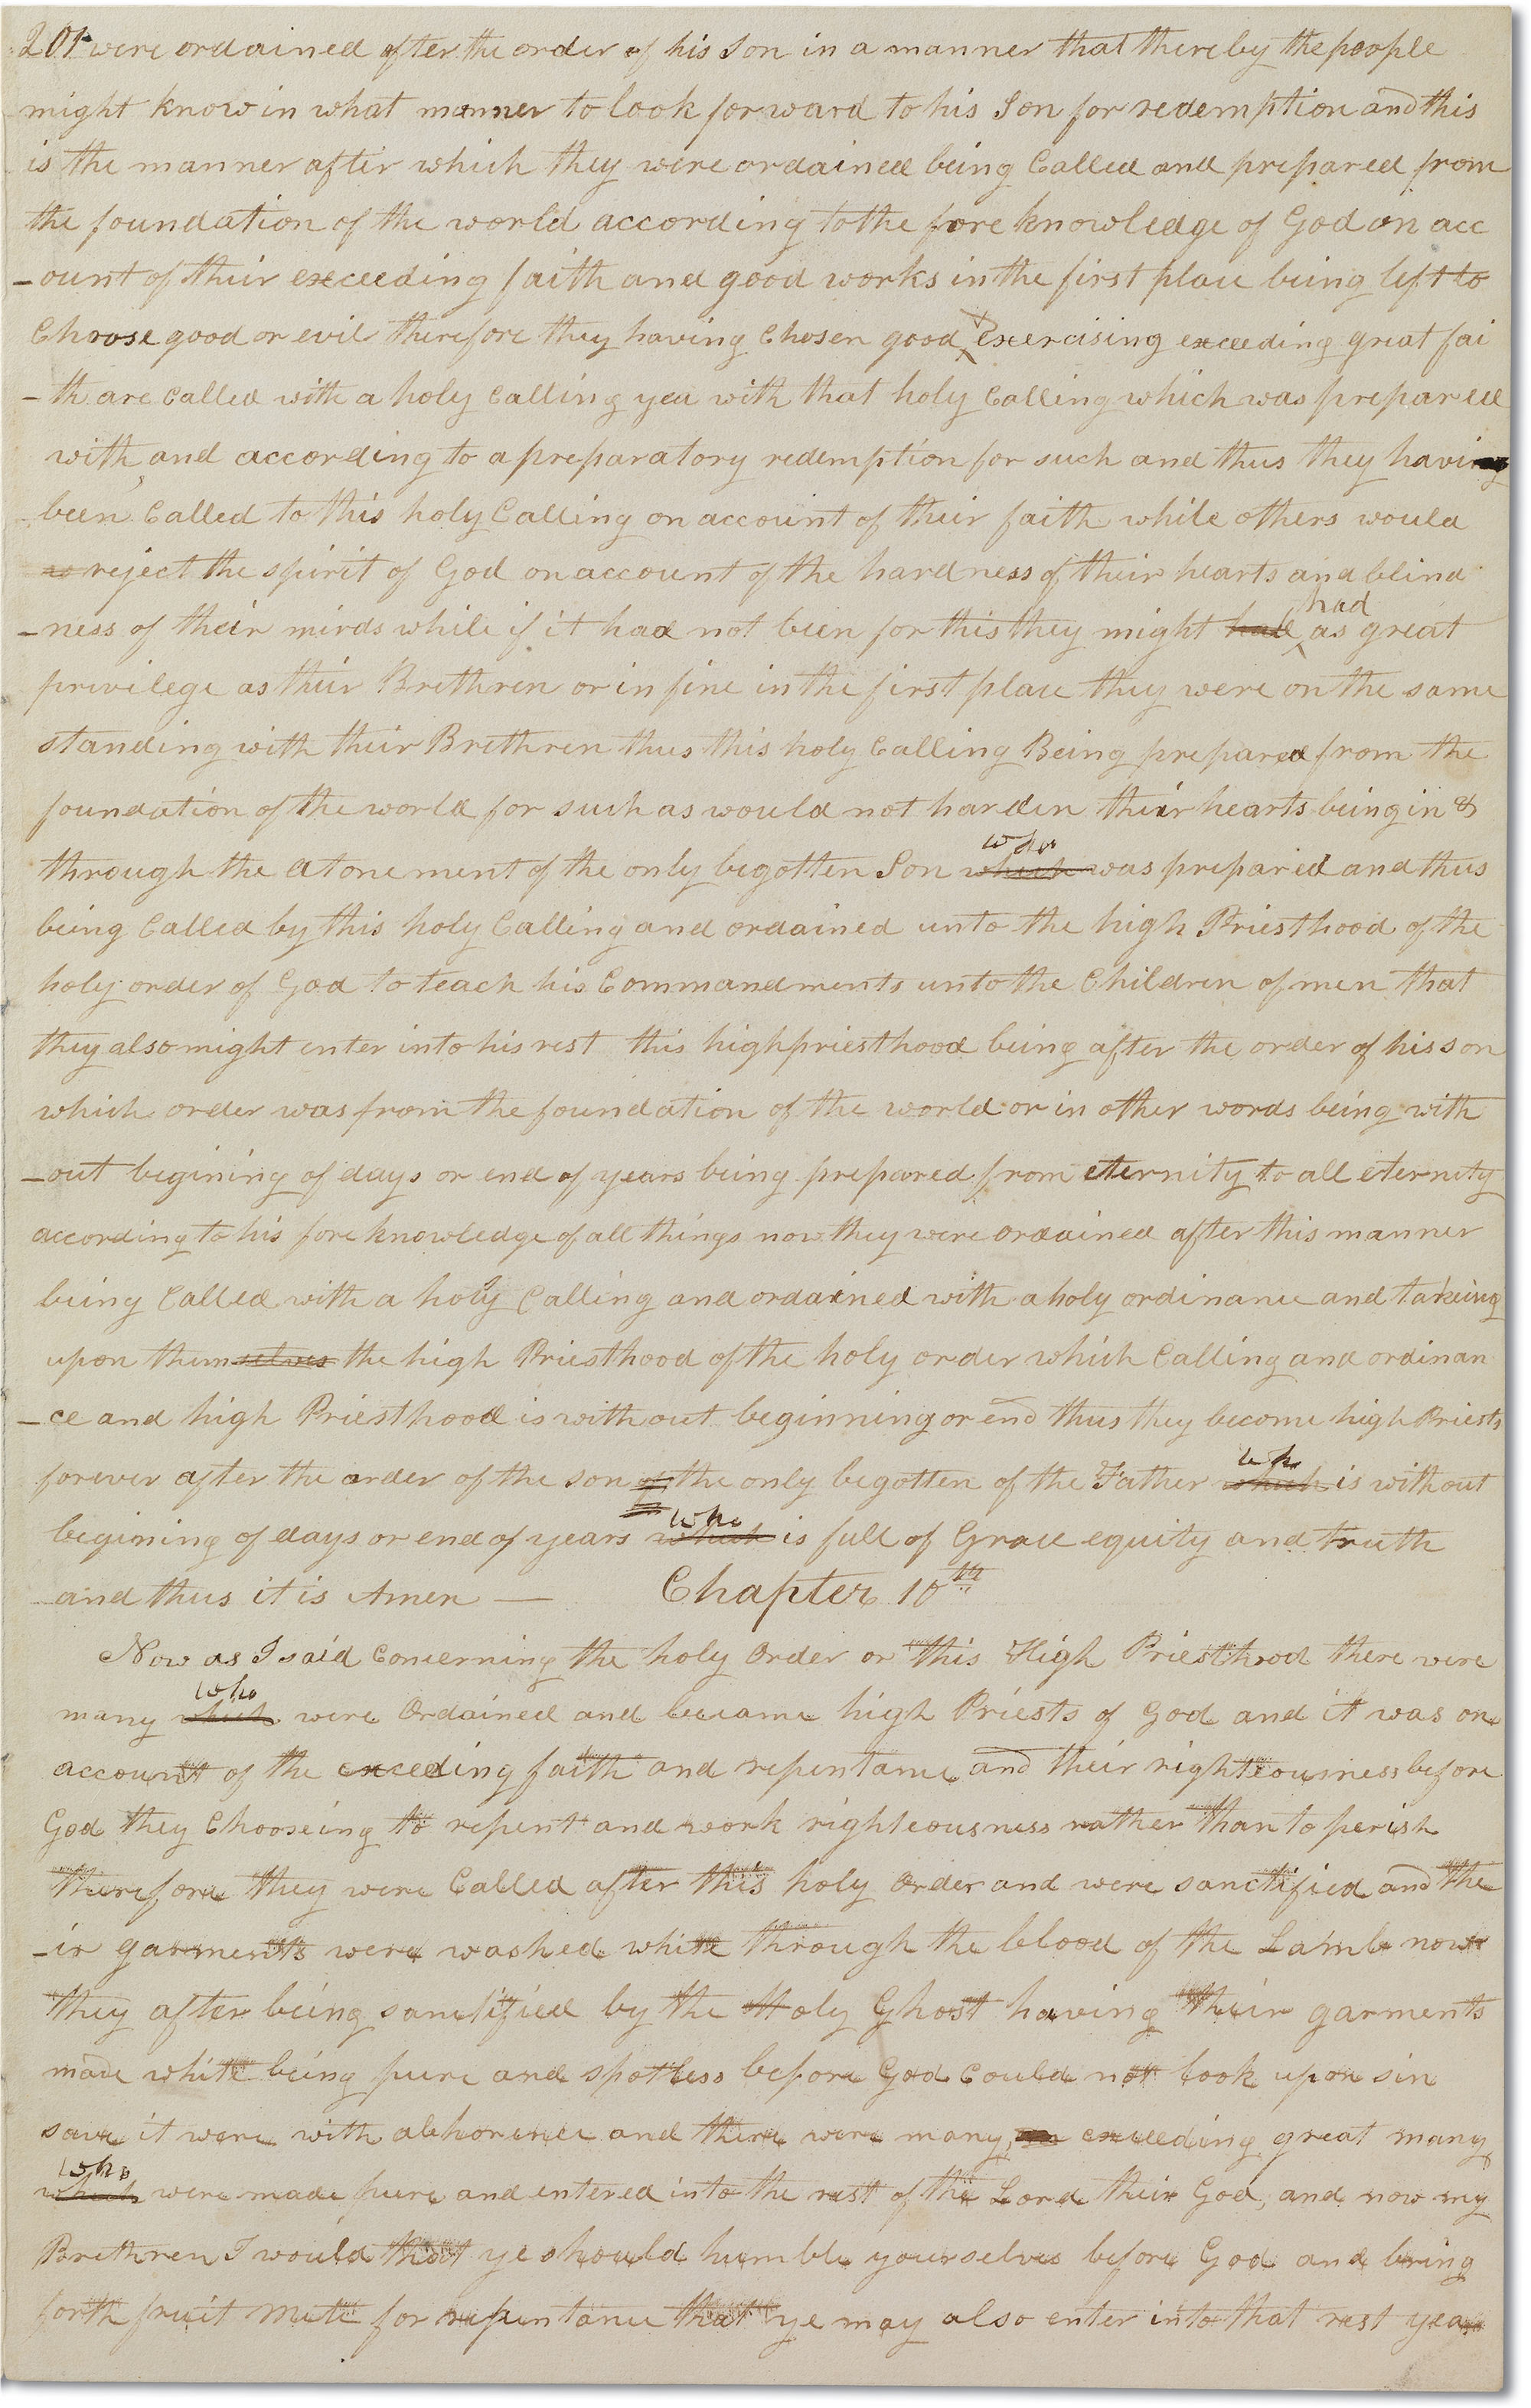 201 were ordained after the order of his Son in a manner that thereby the people
might know in what manner to look forward to his Son for redemption and this
is the manner after which they were ordained being Called and prepared from
the foundation of the world according to the fore knowledge of God on acc
-ount of their exceeding faith and good works in the first place being left to
Choose good or evil therefore they having Chosen good & exercising exceeding great fai
-th are Called with a holy Calling yea with that holy Calling which was prepared
with, and according to a preparatory redemption for such and thus they having
been Called to this holy Calling on account of their faith while others would
as reject the spirit of God on account of the hardness of their hearts and blind
had
-ness of their minds while if it had not been for this they might had as great
privilege as their Brethren or in fine in the first place they were on the same
standing with their Brethren thus this holy Calling Being prepared from the
foundation of the world for such as would not harden their hearts being in &
who
through the atonement of the only begotten Son which was prepared and thus
being Called by this holy Calling and ordained unto the high Priesthood of the
holy order of God to teach his Commandments unto the Children of men that
they also might enter into his rest this highpriesthood being after the order of his son
which order was from the foundation of the world or in other words being with
-out begining of days or end of years being prepared from eternity to all eternity
according to his fore knowledge of all things now they were ordained after this manner
being Called with a holy Calling and ordained with a holy ordinance and takeing
upon themselves the high Priesthood of the holy order which Calling and ordinan
-ce and high Priesthood is without beginning or end thus they become high Priests
who
forever after the order of the son of the only begotten of the Father which is without
who
begining of days or end of years which is full of Grace equity and truth
and thus it is Amen — Chapter 10th
Now as I said Concerning the holy Order or this High Priesthood there were
who
many which were Ordained and became high Priests of God and it was on
account of the exceeding faith and repentance and their righteousness before
God they Chooseing to repent and work righteousness rather than to perish
therefore they were Called after this holy Order and were sanctified and the
-ir garments were washed white through the blood of the Lamb now
they after being sanctified by the Holy Ghost having their garments
made white being pure and spotless before God Could not look upon sin
save it were with abhorence and there were many, exceeding great many,
who
which were made pure and entered into the rest of the Lord their God, and now my
Brethren I would that ye should humble yourselves before God and bring
forth fruit mete for repentance that ye may also enter into that rest yea